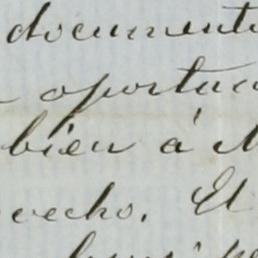 document
oportu
bien á
vecho. El